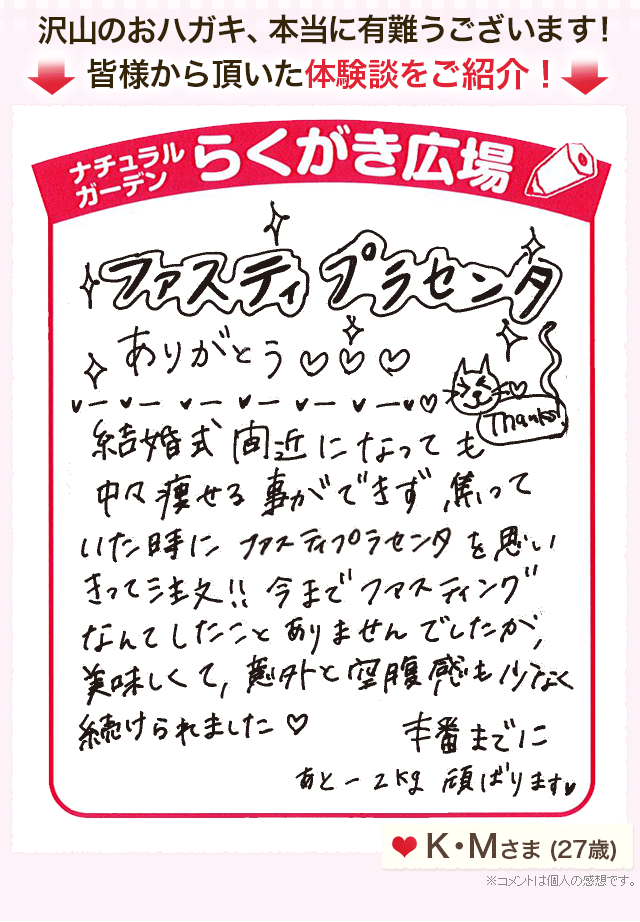 沢山のおハガキ、本当に有難うございます!
皆様から頂いた体験談をご紹介!
ナチュラル
ガーデン
らくがき広場
ファスティプラセンタ
ありがとう♡♡♡
Thanks!
結婚式間近になっても
中々痩せる事ができず、焦って
いた時にファスティプラセンタを思い
きって注文!!今までファスティング
なんてしたことありませんでしたが、
美味しくて、意外と空腹感も少なく
続けられました♡
本番までに
あと−2kg頑ばります♥
❤K・Mさま(27歳)
※コメントは個人の感想です。